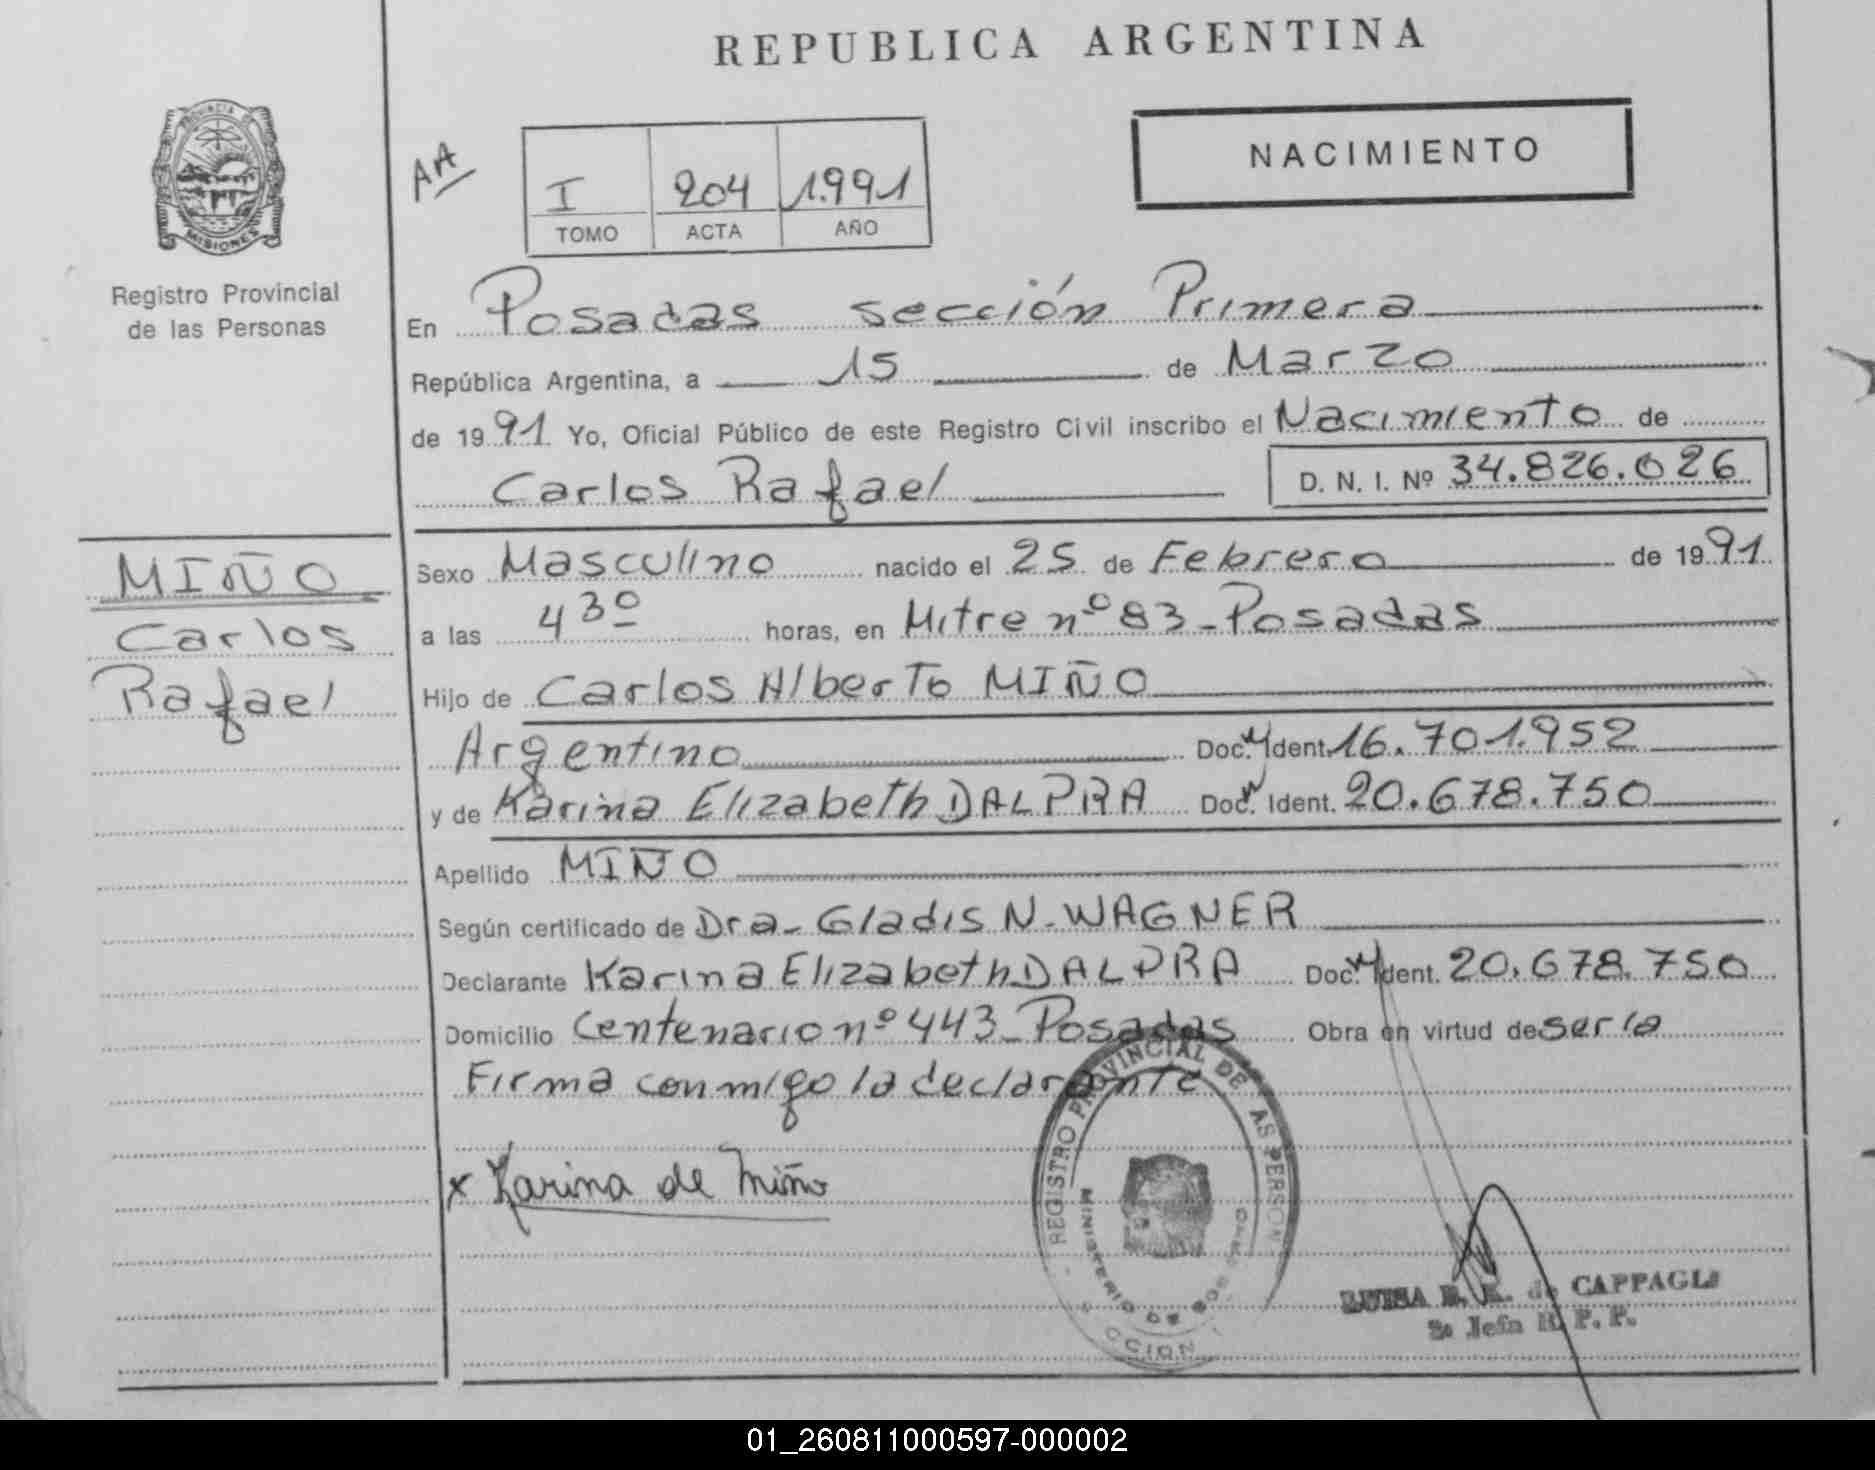 REPUBLICA ARGENTINA
PROVINCIA DE
MISIONES
Registro Provincial
de las Personas
AA
I 204 1.991
TOMO ACTA AÑO
NACIMIENTO
En Posadas sección Primera
República Argentina, a 15 de Marzo
de 1991 Yo, Oficial Público de este Registro Civil inscribo el Nacimiento de
Carlos Rafael D. N. I. Nº 34.826.026
MIÑO
Carlos
Rafael
Sexo Masculino nacido el 25 de Febrero de 1991
a las 4 30 horas, en Mitre nº 83-Posadas
Hijo de Carlos Alberto MIÑO
Argentino Doc. Ident. 16.701.952
y de Karina Elizabeth DALPRA Doc. Ident. 20.678.750
Apellido MIÑO
Según certificado de Dra- Gladis N-WAGNER
Declarante Karina Elizabeth DALPRA Doc. Ident. 20.678.750
Domicilio Centenario nº 443-Posadas Obra en virtud de ser la
Firma conmigo la declarante
x Karina de Miño
REGISTRO PROVINCIAL DE AS PERSON
MINISTERIO DE
LUISA de CAPPAGLI
Jefa R. P. P.
01_260811000597-000002